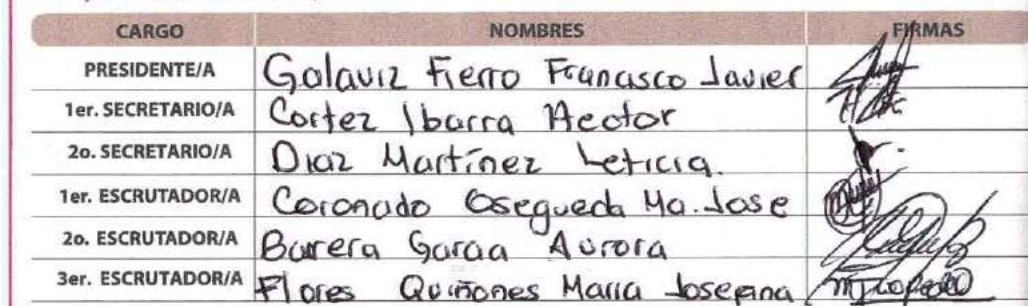 CARGO NOMBRES FIRMAS
PRESIDENTE/A Galaviz Fierro Francisco Javier
1er. SECRETARIO/A Cortez Ibarra Hector
2o. SECRETARIO/A Diaz Martínez Leticia.
1er. ESCRUTADOR/A Coronado Osegueda Ma. Jose
2o. ESCRUTADOR/A Barrera Garcia Aurora
3er. ESCRUTADOR/A Flores Quiñones Maria Josefina